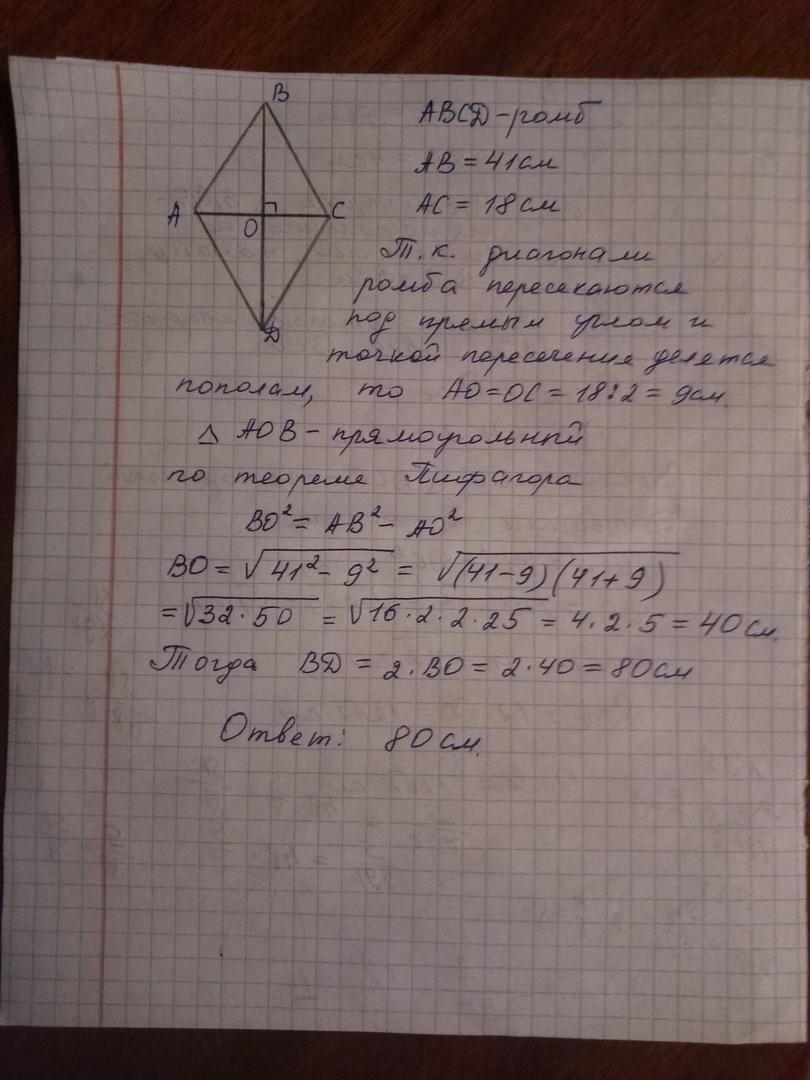 B
ABCD-ромб
AB = 41 см
A
C
O
AC = 18 см
Т.к. диагонали
ромба пересекаются
под прямым углом и
D
точкой пересечения делятся
пополам, то AO=OC = 18:2 = 9см.
△ AOB - прямоугольный
по теореме Пифагора
BO² = AB² - AO²
BO = √41² - 9² = √(41-9)(41+9)
= √32·50 = √16·2·2·25 = 4·2·5 = 40 см.
Тогда BD = 2·BO = 2·40 = 80см
Ответ: 80 см.